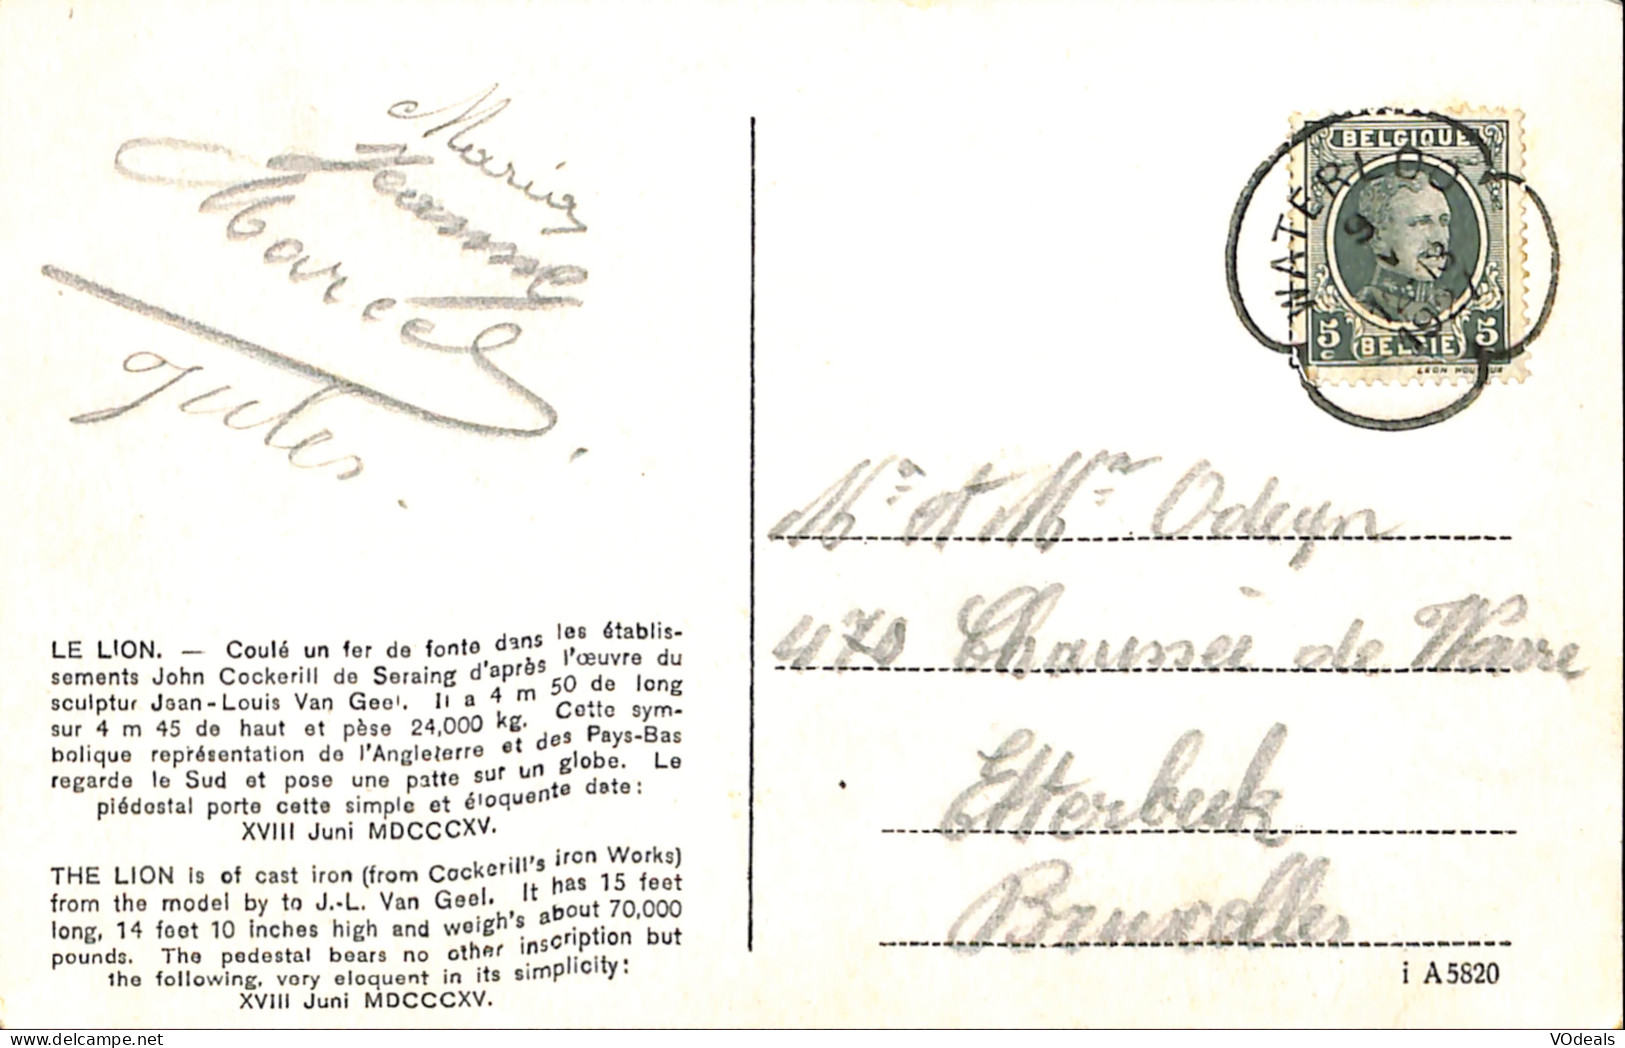 Maria
Jeanne
Marcel
Jules.
LE LION. — Coulé un fer de fonte dans les établis-
sements John Cockerill de Seraing d'après l'œuvre du
sculptur Jean-Louis Van Geel. Il a 4 m 50 de long
sur 4 m 45 de haut et pèse 24,000 kg. Cette sym-
bolique représentation de l'Angleterre et des Pays-Bas
regarde le Sud et pose une patte sur un globe. Le
piédestal porte cette simple et éloquente date:
XVIII Juni MDCCCXV.
THE LION is of cast iron (from Cockerill's iron Works)
from the model by to J.-L. Van Geel. It has 15 feet
long, 14 foot 10 inches high and weigh's about 70,000
pounds. The pedestal bears no other inscription but
the following, very eloquent in its simplicity:
XVIII Juni MDCCCXV.
BELGIQUE
WATERLOO
9
12-13
5c BELGIË 5c
Mr et Mme Odeyn
470 Chaussée de Wavre
Etterbeek
Bruxelles
i A5820
VOdeals